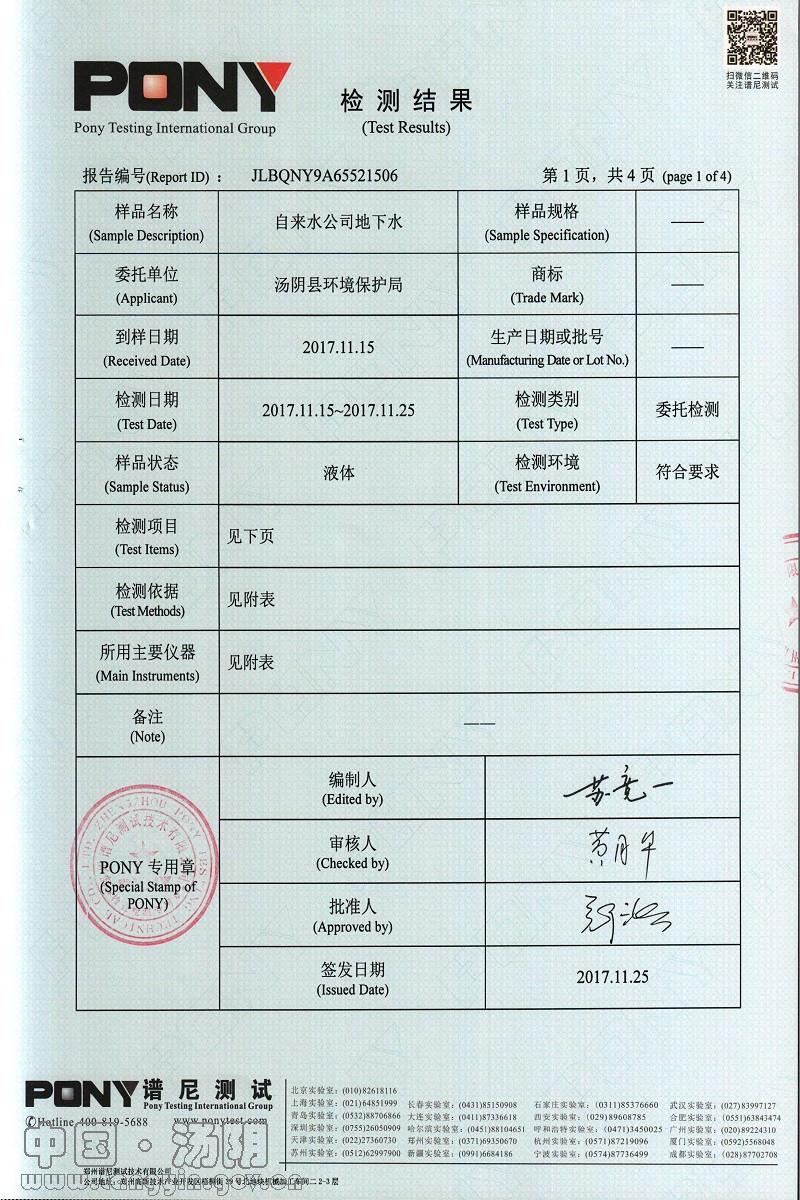 扫微信二维码
关注谱尼测试
PONY
Pony Testing International Group
检测结果
(Test Results)
报告编号(Report ID) : JLBQNY9A65521506
第 1 页，共 4 页 (page 1 of 4)
样品名称
(Sample Description)
自来水公司地下水
样品规格
(Sample Specification)
——
委托单位
(Applicant)
汤阴县环境保护局
商标
(Trade Mark)
——
到样日期
(Received Date)
2017.11.15
生产日期或批号
(Manufacturing Date or Lot No.)
——
检测日期
(Test Date)
2017.11.15~2017.11.25
检测类别
(Test Type)
委托检测
样品状态
(Sample Status)
液体
检测环境
(Test Environment)
符合要求
检测项目
(Test Items)
见下页
检测依据
(Test Methods)
见附表
所用主要仪器
(Main Instruments)
见附表
备注
(Note)
——
PONY 专用章
(Special Stamp of
PONY)
编制人
(Edited by)
审核人
(Checked by)
黄月华
批准人
(Approved by)
签发日期
(Issued Date)
2017.11.25
PONY 谱尼测试
Pony Testing International Group
Hotline 400-819-5688 www.ponytest.com
北京实验室: (010)82618116
上海实验室: (021)64851999 长春实验室: (0431)85150908 石家庄实验室: (0311)85376660 武汉实验室: (027)83997127
青岛实验室: (0532)88706866 大连实验室: (0411)87336618 西安实验室: (029)89608785 合肥实验室: (0551)63843474
深圳实验室: (0755)26050909 哈尔滨实验室: (0451)88104651 呼和浩特实验室: (0471)3450025 广州实验室: (020)89224310
天津实验室: (022)27360730 郑州实验室: (0371)69350670 杭州实验室: (0571)87219096 厦门实验室: (0592)5568048
苏州实验室: (0512)62997900 新疆实验室: (0991)6684186 宁波实验室: (0574)87736499 成都实验室: (028)87702708
中国·汤阴
www.tangyin.gov.cn
郑州谱尼测试技术有限公司
公司地址: 郑州高新技术产业开发区梧桐街 39 号北地块机械加工车间二 2-3 层